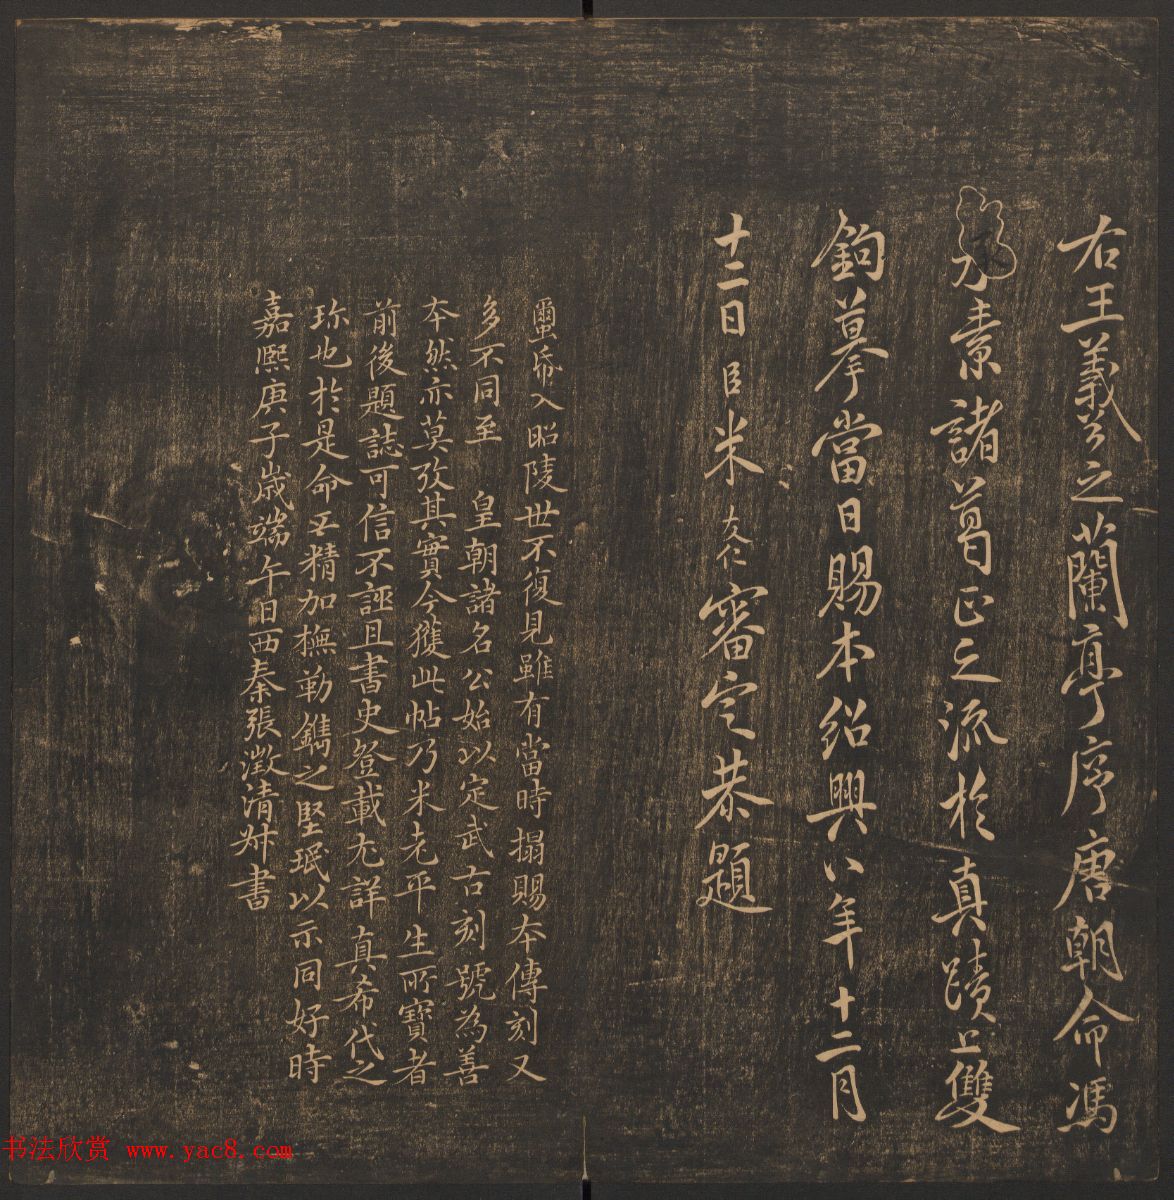 右王羲之蘭亭序唐朝命馮
承素諸葛正之流於真蹟上雙
鉤摹當日賜本紹興八年十二月
十二日臣米友仁審定恭題
璽帋入昭陵世不復見雖有當時搨賜本傳刻又
多不同至 皇朝諸名公始以定武古刻號為善
本然亦莫攷其實今獲此帖乃米老平生所寶者
前後題誌可信不誣且書史登載尤詳真希代之
珎也於是命工精加撫勒鐫之堅珉以示同好時
嘉熙庚子歲端午日西秦張澂清卅書
书法欣赏 www.yac8.com